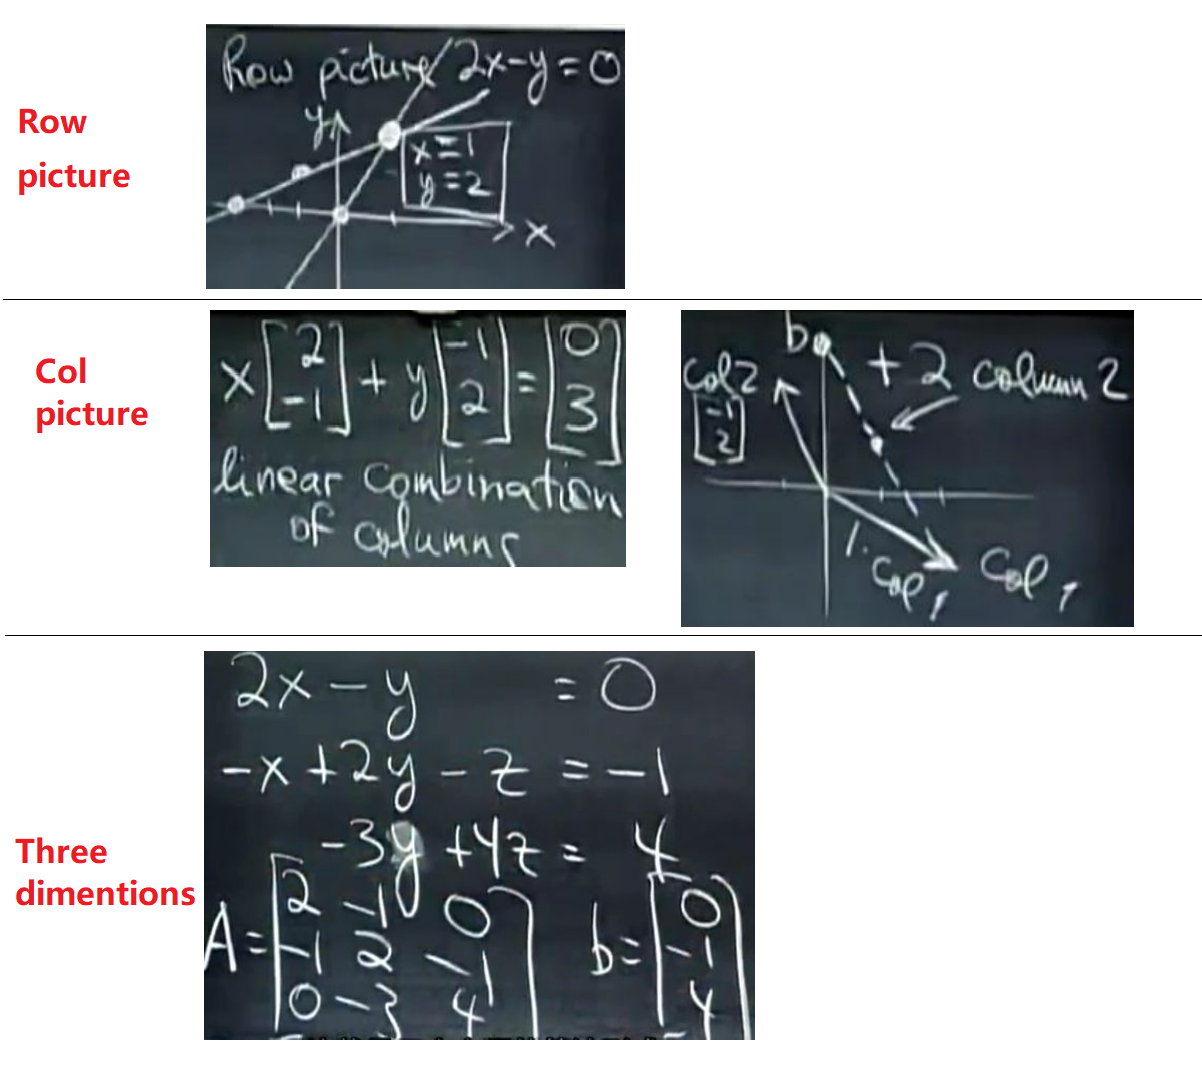 Row
picture
Row picture 2x-y=0
y
x=1
y=2
x
Col
picture
x[2 -1] + y[-1 2] = [0 3]
linear combination
of columns
b
+2 column 2
col 2
[-1 2]
1. Col 1
Col 1
Three
dimentions
2x - y = 0
-x + 2y - z = -1
-3y + 4z = 4
A = [2 -1 0
-1 2 -1
0 -3 4]
b = [0
-1
4]